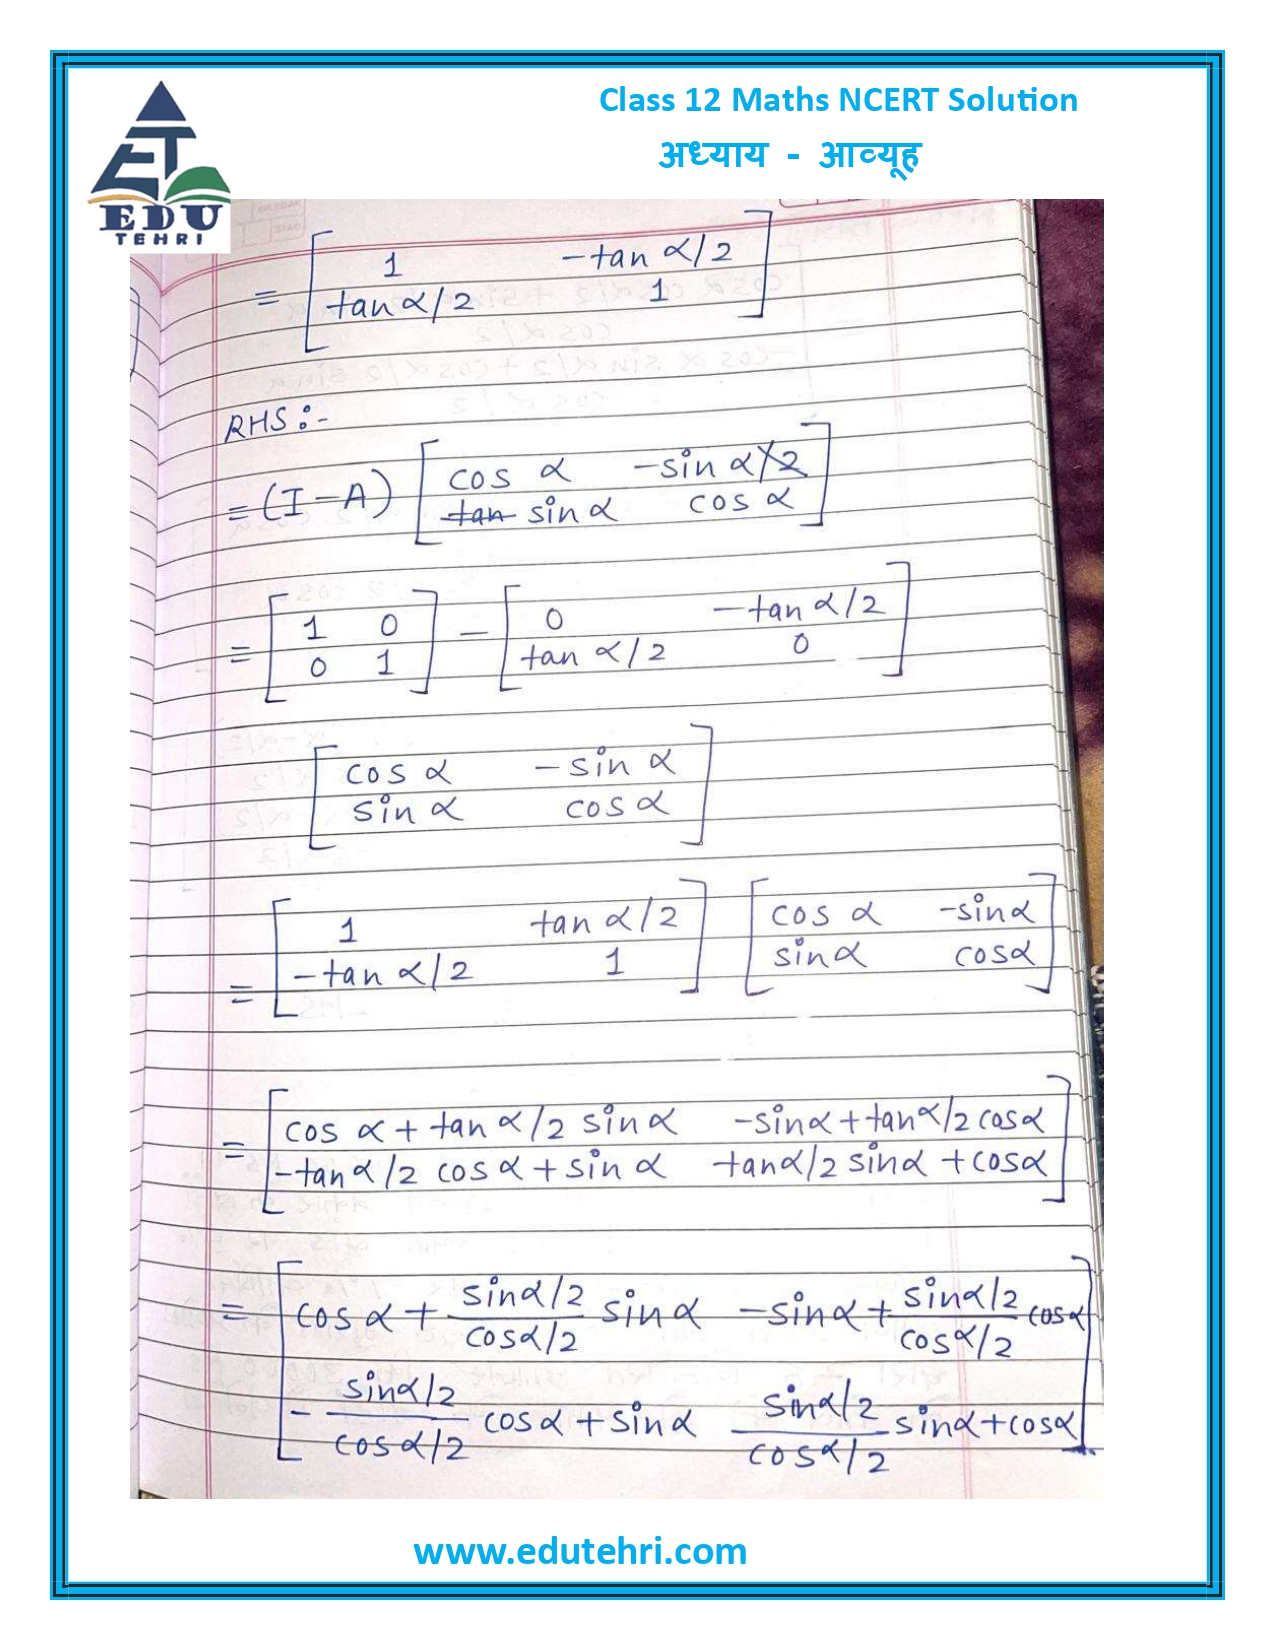 Class 12 Maths NCERT Solution
अध्याय - आव्यूह
EDU
TEHRI
= [ 1 -tan α/2
tan α/2 1 ]
RHS :-
= (I - A) [ cos α -sin α/2
tan sin α cos α ]
= [ 1 0
0 1 ] - [ 0 -tan α/2
tan α/2 0 ]
[ cos α -sin α
sin α cos α ]
= [ 1 tan α/2
-tan α/2 1 ] [ cos α -sin α
sin α cos α ]
= [ cos α + tan α/2 sin α -sin α + tan α/2 cos α
-tan α/2 cos α + sin α tan α/2 sin α + cos α ]
= [ cos α + sin α/2 / cos α/2 sin α -sin α + sin α/2 / cos α/2 cos α
- sin α/2 / cos α/2 cos α + sin α sin α/2 / cos α/2 sin α + cos α ]
www.edutehri.com